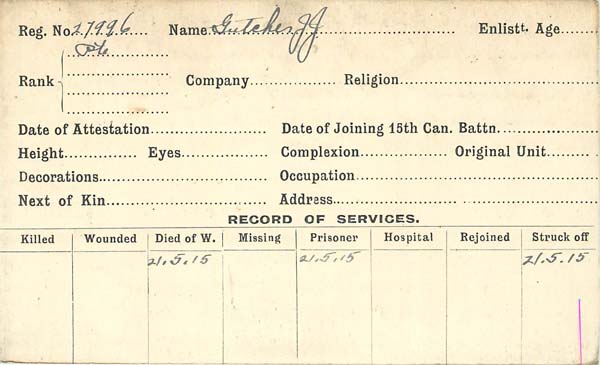 Reg. No. 27996 Name Gutcher JJ Enlistt. Age
Pte
Rank Company Religion
Date of Attestation Date of Joining 15th Can. Battn.
Height Eyes Complexion Original Unit
Decorations Occupation
Next of Kin Address
RECORD OF SERVICES.
Killed Wounded Died of W. Missing Prisoner Hospital Rejoined Struck off
21.5.15 21.5.15 21.5.15